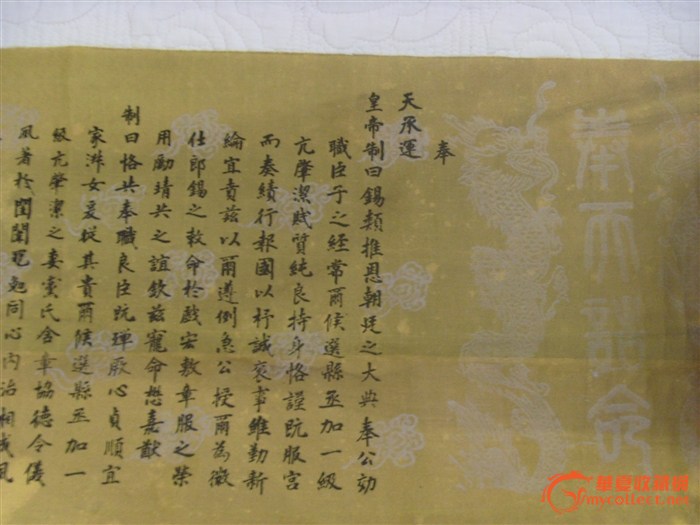 奉天誥命
奉
天承運
皇帝制曰錫類推恩朝廷之大典奉公効
職臣子之経常爾候選縣丞加一級
亢肇潔賦質純良持身恪謹既服官
而奏績行報國以抒誠褒事維勤新
綸宜賁兹以爾遵例急公授爾為徵
仕郎錫之敕命於戲宏敷章服之榮
用勵靖共之誼欽兹寵命懋嘉猷
制曰恪共奉職良臣既殫厥心貞順宜
家淑女爰從其貴爾候選縣丞加一
級亢肇潔之妻竇氏含章協德令儀
風著於閨閫黽勉同心内治相成風
華夏收藏網
mycollect.net